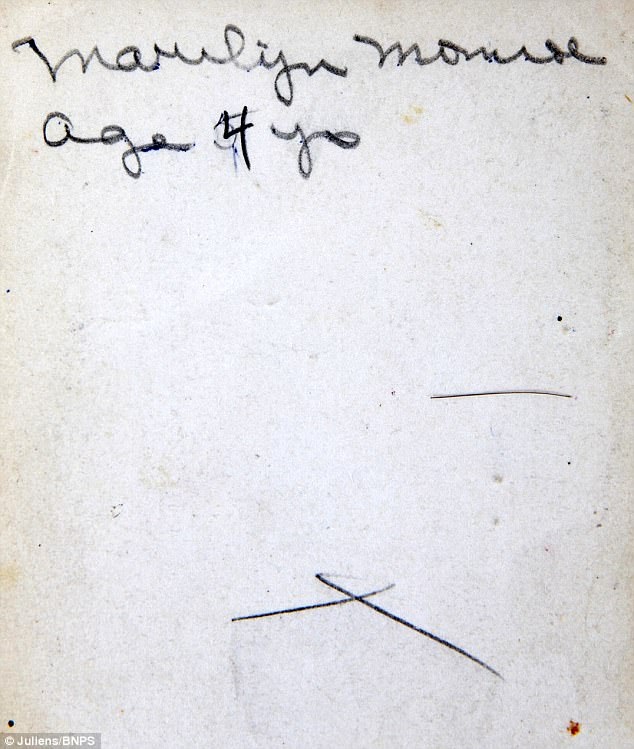 Marilyn Monroe
Age 4 yo
© Juliens/BNPS